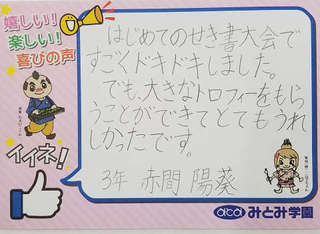 嬉しい!
楽しい!
喜びの声
はじめてのせき書大会で
すごくドキドキしました。
でも、大きなトロフィーをもら
うことができてとてもうれ
しかったです。
3年 赤間 陽葵
イイネ!
aba みとみ学園